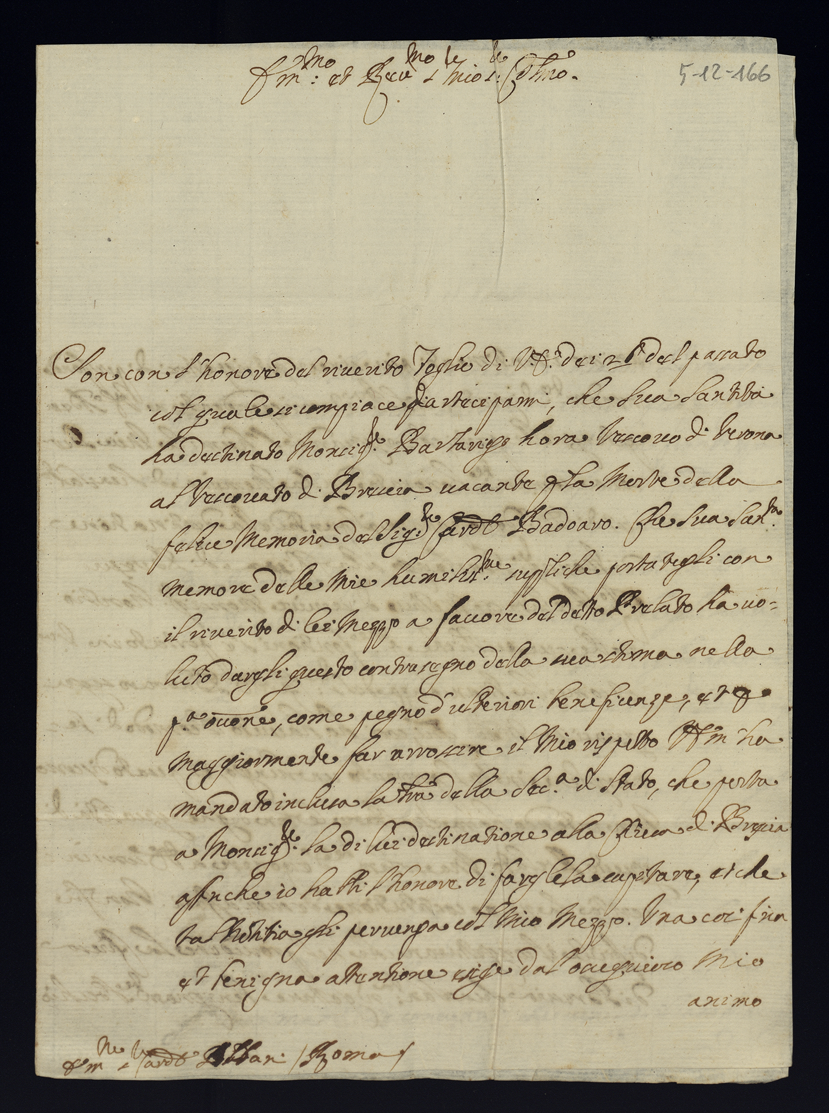 Em.mo et Rev.mo Sig.re mio Sig.re Col.mo
5-12-166
Son con l'honore del riverito foglio di V.E. dei 26 del passato
col quale si compiace parteciparmi, che Sua Santità
ha destinato Monsig.r Barbarigo hora Vescovo di Verona
al Vescovato di Brescia vacante p la Morte della
felice Memoria del Sig.r Card.l Badoaro. Che Sua San.tà
memore delle Mie humiliss.me suppliche portategli con
il riverito di lei Mezzo a favore del detto Prelato ha vo-
luto dargli questo contrasegno della sua stima nella
p.a occ.one, come pegno d'ulteriori beneficenze, et p
maggiormente far arrossire il Mio rispetto V.Em. ha
mandato inclusa la l'ra della Sec.a di Stato, che porta
a Monsig.r la di lui destinatione alla Chiesa di Brescia
affinche io habbi l'honore di fargliela capitare, et che
tal Notitia gli pervenga col Mio Mezzo. Una così fina
et benigna attentione esige dal ossequioso Mio
animo
Em. Sig.r Card.l Albani / Roma /